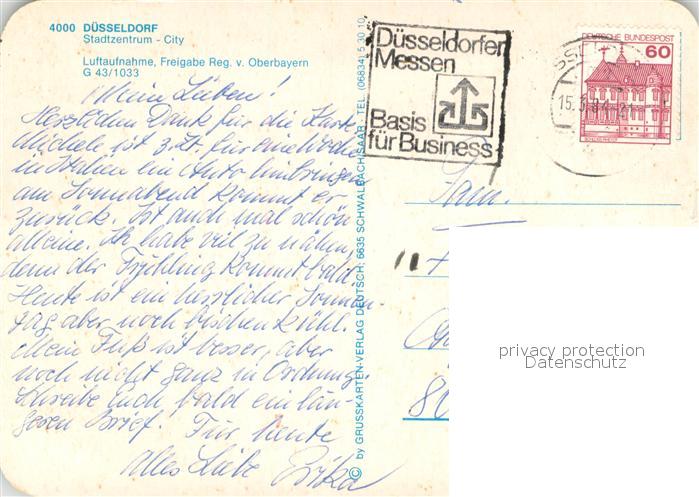 4000 DÜSSELDORF
Stadtzentrum - City
Luftaufnahme, Freigabe Reg. v. Oberbayern
G 43/1033
Meine Lieben!
Herzlichen Dank für die Karte
Michele ist z. Zt. für eine Woche
in Italien ein Auto hinbringen
am Sonnabend kommt er
zurück. Ist auch mal schön
alleine. Ich habe viel zu nähn,
denn der Frühling kommt bald.
Heute ist ein herrlicher Sonnen-
tag aber noch bischen kühl.
Mein Fuß ist besser, aber
noch nicht ganz in Ordnung.
Schreibe Euch bald ein län-
geren Brief. Für heute
alles Liebe Erika
© by GRUSSKARTEN-VERLAG DEUTSCH; 6635 SCHWALBACH/SAAR. TEL. (06834) 5 30 10
Düsseldorfer
Messen
Basis
für Business
DEUTSCHE BUNDESPOST
60
Fam.
80
privacy protection
Datenschutz